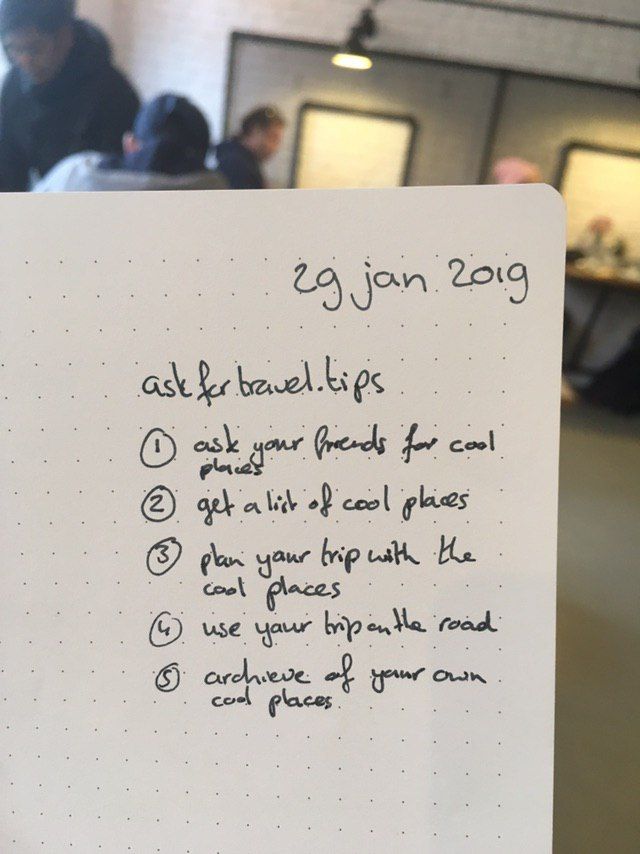 29 jan 2019
askfortravel.tips
1 ask your friends for cool
places
2 get a list of cool places
3 plan your trip with the
cool places
4 use your trip on the road
5 archieve of your own
cool places